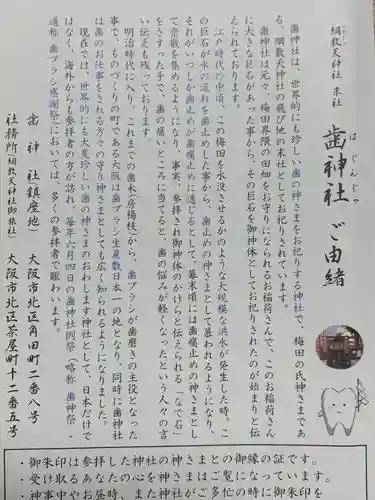 綱敷天神社 末社
歯神社 ご由緒
はじんじゃ
歯神社は、世界的にも珍しい歯の神さまをお祀りする神社で、梅田の氏神さまであ
る、綱敷天神社の飛び地の末社としてお祀りされています。
歯神社は元々、梅田界隈の田畑をお守りになられるお稲荷さんで、このお稲荷さん
に大きな巨石があった事から、その巨石を御神体としてお祀りされたのが始まりと伝
えられております。
江戸時代の中頃、この梅田を水没させるかのような大規模な洪水が発生した時、こ
の巨石が水の流れを歯止めした事から、歯止めの神さまとして慕われるようになり、
それがいつしか歯止めが歯痛止めに通じるとして、幕末頃には歯痛止めの神さまとし
て崇敬を集めるようになり、事実、参拝され御神体のかけらと伝えられる「なで石」
をさすった手で、歯の痛いところに当てると、歯の悩みが軽くなったという人々の言
い伝えも残っております。
明治時代に入り、これまでの歯木（房楊枝）から、歯ブラシが歯磨きの主役となった
事で、ものづくりの町である大阪は歯ブラシ生産数日本一の地となり、同時に歯神社
は歯のお仕事をされる方々の守り神さまとしても広く知られるようになりました。
現在では、世界的にも大変珍しい歯の神さまのおわします神社として、日本だけで
はなく、海外からも参拝者の方が訪れ、毎年六月四日の歯神社例祭（略称 歯神祭・
通称 歯ブラシ感謝祭）においては、多くの参拝者で賑わいます。
歯神社鎮座地） 大阪市北区角田町二番八号
社務所（綱敷天神社御旅社） 大阪市北区茶屋町十二番五号
・御朱印は参拝したの神社の神さまとの御縁の証です。